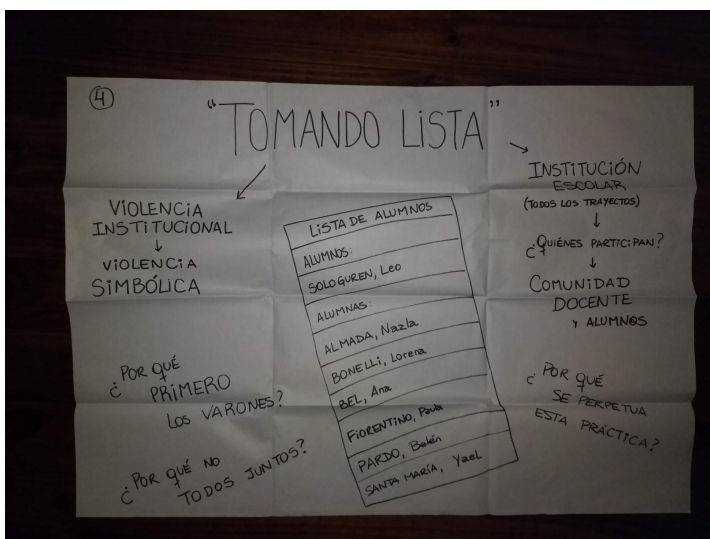 ④
"TOMANDO LISTA"
VIOLENCIA
INSTITUCIONAL
↓
VIOLENCIA
SIMBÓLICA
¿POR QUÉ
PRIMERO
LOS VARONES?
¿POR QUÉ NO
TODOS JUNTOS?
LISTA DE ALUMNOS
ALUMNOS:
SOLOGUREN, Leo
ALUMNAS:
ALMADA, Nazla
BONELLI, Lorena
BEL, Ana
FIORENTINO, Paula
PARDO, Belén
SANTA MARÍA, Yael
INSTITUCIÓN
ESCOLAR
(TODOS LOS TRAYECTOS)
↓
¿QUIÉNES PARTICIPAN?
↓
COMUNIDAD
DOCENTE
Y ALUMN@S
¿POR QUÉ
SE PERPETUA
ESTA PRÁCTICA?